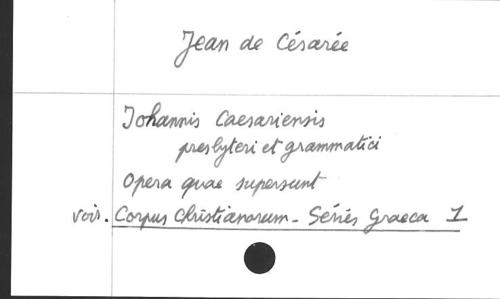 Jean de Césarée
Johannis Caesariensis
presbyteri et grammatici
Opera quae supersunt
voir. Corpus Christianorum - Séries Graeca 1